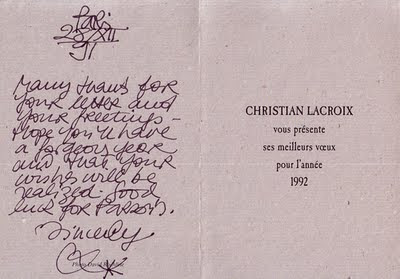 Paris
23/XII
91
Many thanks for
your letter and
your greetings -
I hope you'll have
a gorgeous year
and that your
wishes will be
realized. Good
luck for
Sincerely
CHRISTIAN LACROIX
vous présente
ses meilleurs vœux
pour l'année
1992